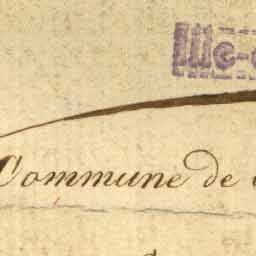 Ille-
Commune de